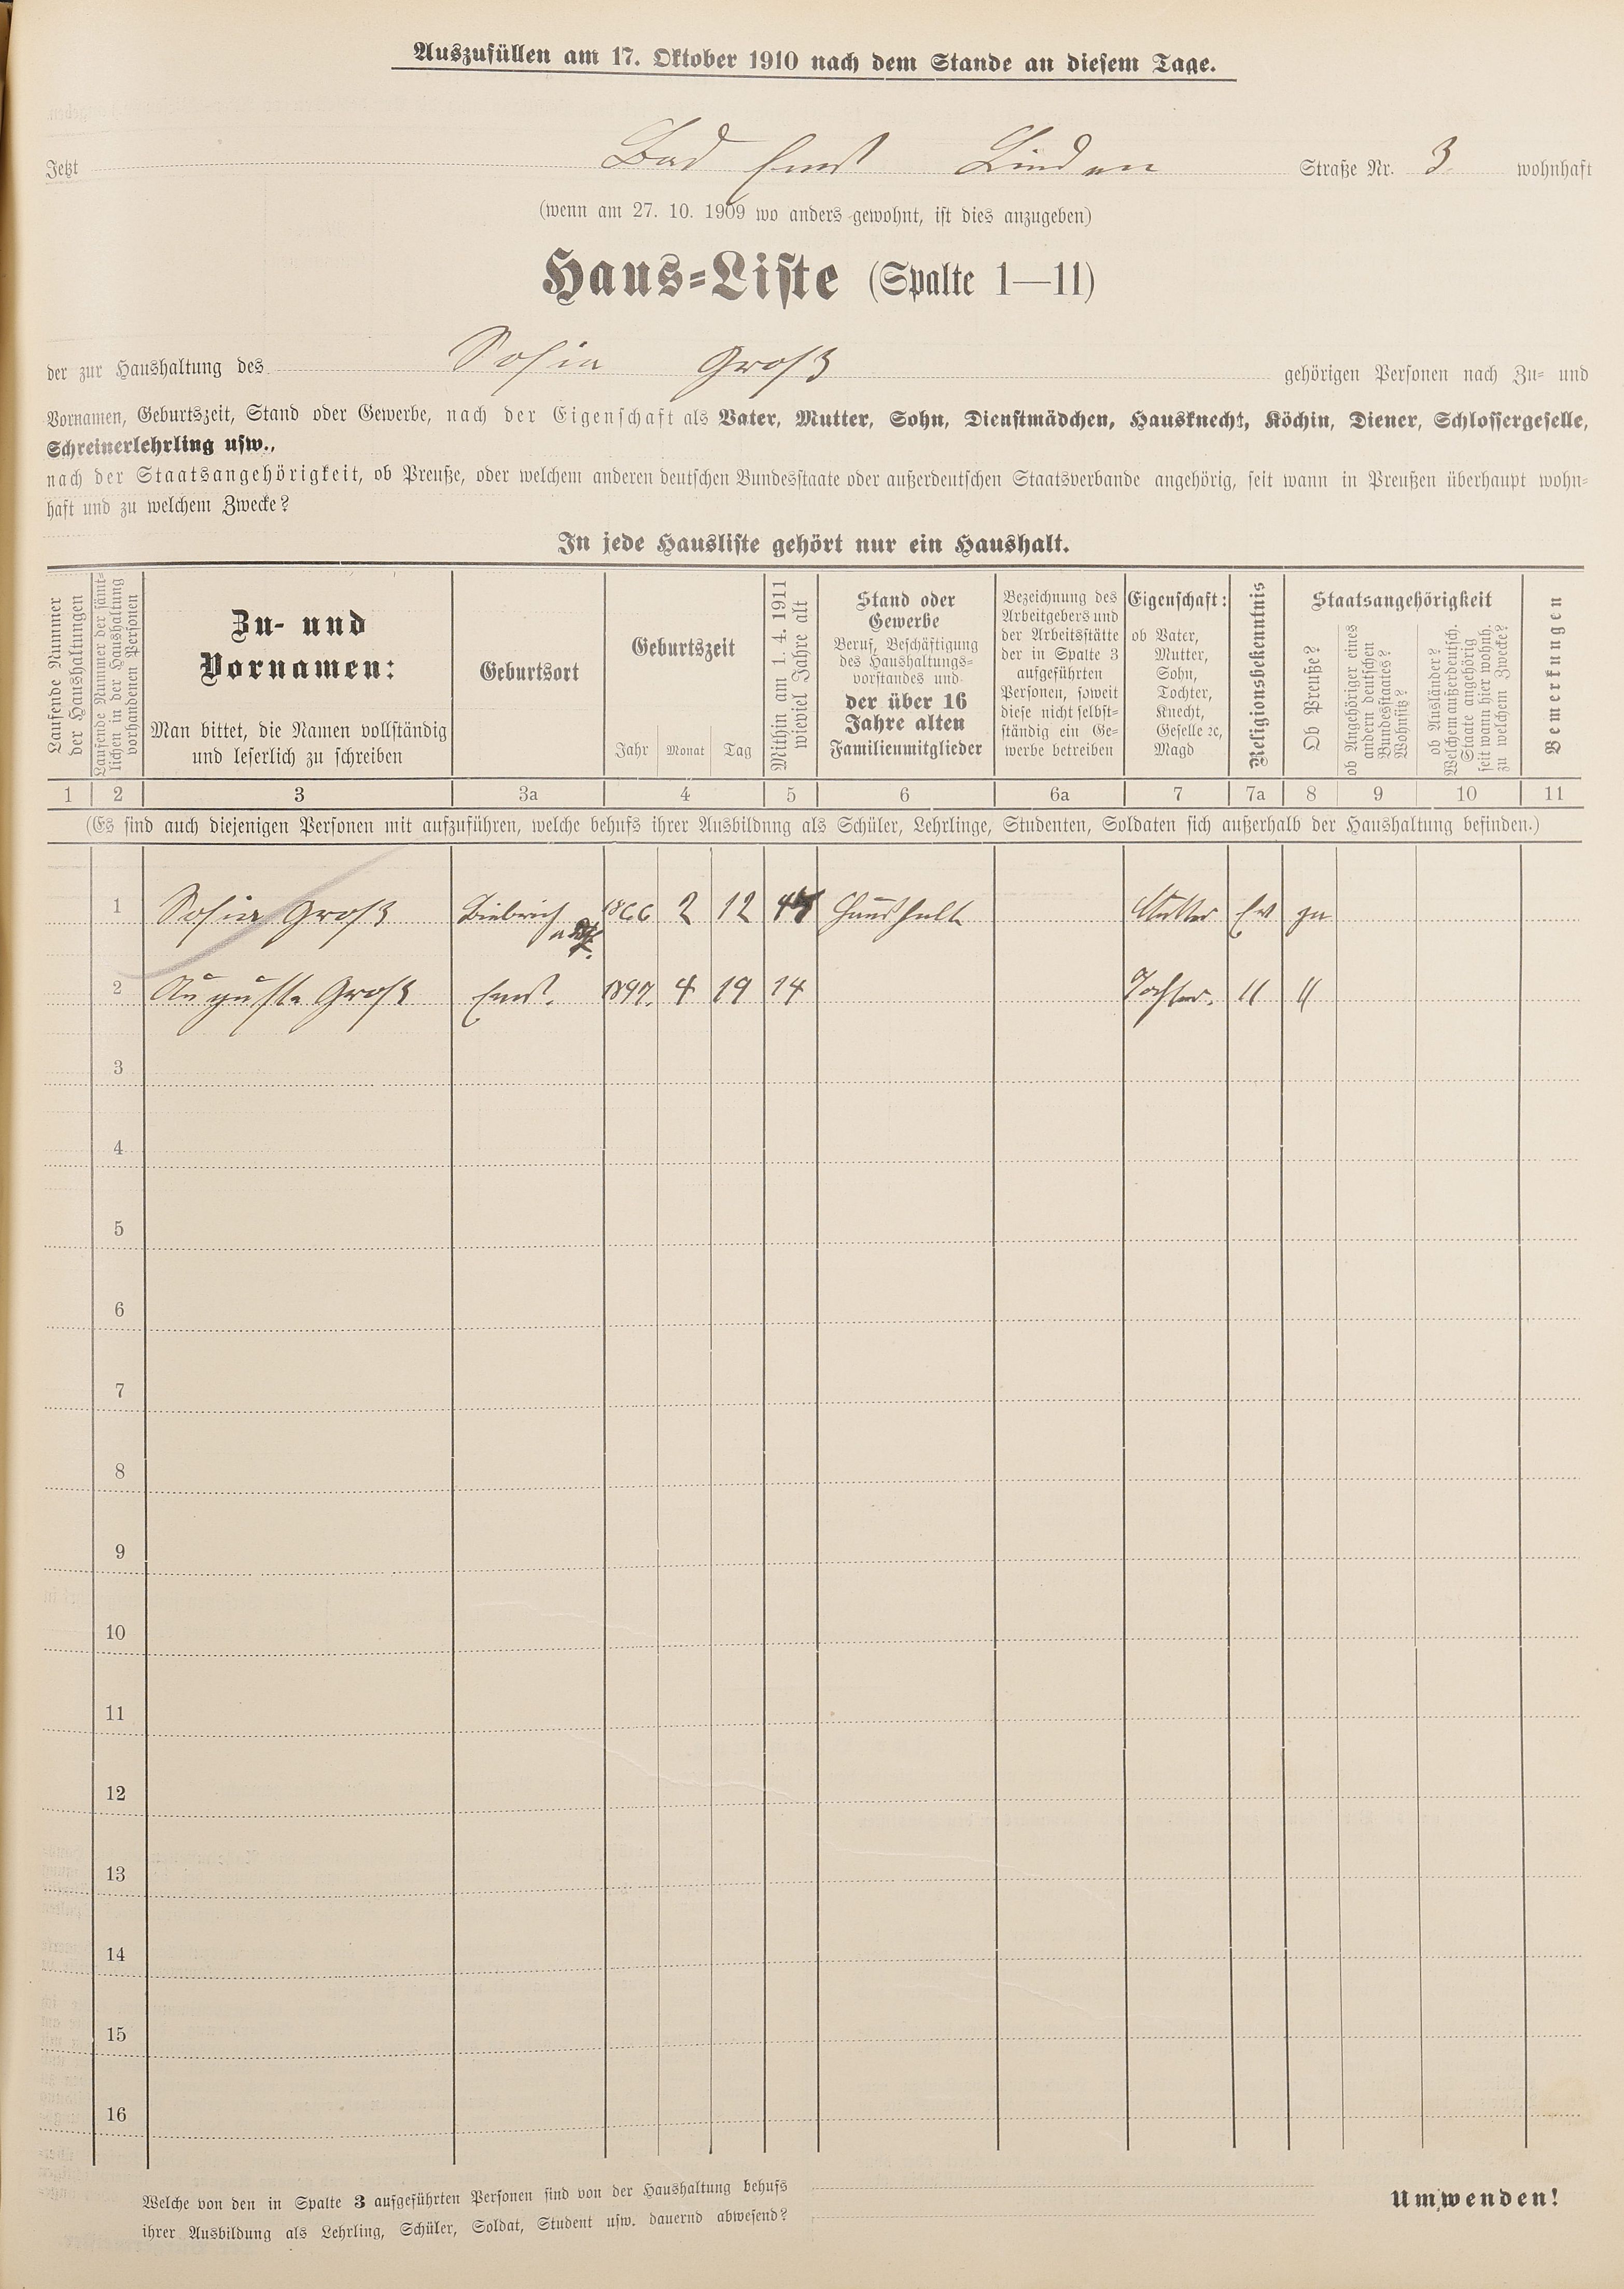 Auszufüllen am 17. Oktober 1910 nach dem Stande an diesem Tage.
Jetzt Bad Ems Linden Straße Nr. 3 wohnhaft
(wenn am 27. 10. 1909 wo anders gewohnt, ist dies anzugeben)
Haus-Liste (Spalte 1—11)
der zur Haushaltung des Sofia Groß gehörigen Personen nach Zu- und
Vornamen, Geburtszeit, Stand oder Gewerbe, nach der Eigenschaft als Vater, Mutter, Sohn, Dienstmädchen, Hausknecht, Köchin, Diener, Schlossergeselle,
Schreinerlehrling usw.,
nach der Staatsangehörigkeit, ob Preuße, oder welchem anderen deutschen Bundesstaate oder außerdeutschen Staatsverbande angehörig, seit wann in Preußen überhaupt wohn-
haft und zu welchem Zwecke?
In jede Hausliste gehört nur ein Haushalt.
Laufende Nummer
der Haushaltungen
Laufende Nummer der sämt-
lichen in der Haushaltung
vorhandenen Personen
Zu- und
Vornamen:
Man bittet, die Namen vollständig
und leserlich zu schreiben
Geburtsort
Geburtszeit
Jahr Monat Tag
Mithin am 1. 4. 1911
wieviel Jahre alt
Stand oder
Gewerbe
Beruf, Beschäftigung
des Haushaltungs-
vorstandes und
der über 16
Jahre alten
Familienmitglieder
Bezeichnung des
Arbeitgebers und
der Arbeitsstätte
der in Spalte 3
aufgeführten
Personen, soweit
diese nicht selbst-
ständig ein Ge-
werbe betreiben
Eigenschaft:
ob Vater,
Mutter,
Sohn,
Tochter,
Knecht,
Geselle ꝛc,
Magd
Religionsbekenntnis
Staatsangehörigkeit
Ob Preuße?
ob Angehöriger eines
andern deutschen
Bundesstaates?
Wohnsitz?
ob Ausländer?
Welchem außerdeutsch.
Staate angehörig
seit wann hier wohnh.
zu welchem Zwecke?
Bemerkungen
1 2 3 3a 4 5 6 6a 7 7a 8 9 10 11
(Es sind auch diejenigen Personen mit aufzuführen, welche behufs ihrer Ausbildung als Schüler, Lehrlinge, Studenten, Soldaten sich außerhalb der Haushaltung befinden.)
1 Sofia Groß Biebrich 1866 2 12 Haushalt Mutter Ev ja
2 Auguste Groß Ems. 1897. 4 19 14 Tochter. " "
3
4
5
6
7
8
9
10
11
12
13
14
15
16
Welche von den in Spalte 3 aufgeführten Personen sind von der Haushaltung behufs
ihrer Ausbildung als Lehrling, Schüler, Soldat, Student usw. dauernd abwesend?
Umwenden!